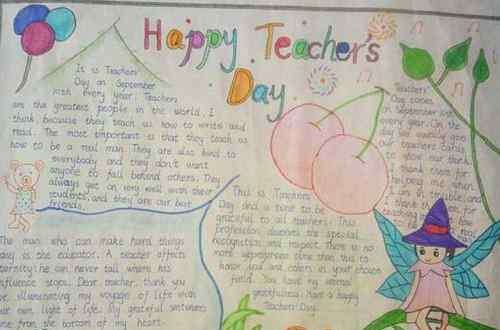 Happy Teacher's
Day
It is Teachers'
Day on September
10th every year. Teachers
are the greatest people in the world. I
think because they teach us how to write and
read. The most important is that they teach us
how to be a real man. They are also kind to
everybody and they don't want
anyone to fall behind others. They
always get on very well with their
students, and they are our best
friends.
The man who can make hard things
easy is the educator. A teacher affects
eternity; he can never tell where his
influence stops. Dear teacher, thank you
for illuminating my voyage of life with
your own light of life. My grateful sentiments
come from the bottom of my heart.
This is Teachers'
Day and a time to be
grateful to all teachers. This
profession deserves the special
recognition and respect. There is no
more appropriate time than this to
honor you and others in your chosen
field. You have my eternal
gratefulness. Have a happy
Teachers' Day!
Teachers'
Day comes
on September 10th
every year. On the
day we usually give
our teachers cards
to show our thank
thank them for
helping me when
I am in trouble, and
I thank them for
teaching